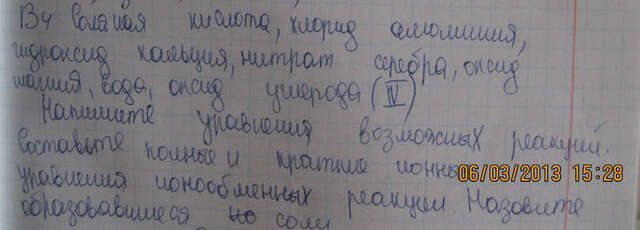 В4 Соляная кислота, хлорид алюминия,
гидроксид кальция, нитрат серебра, оксид
магния, вода, оксид углерода (IV)
Напишите уравнения возможных реакций.
Составьте полные и краткие ионны
06/03/2013 15:28
уравнения ионообменных реакции. Назовите
образовавшиеся соли